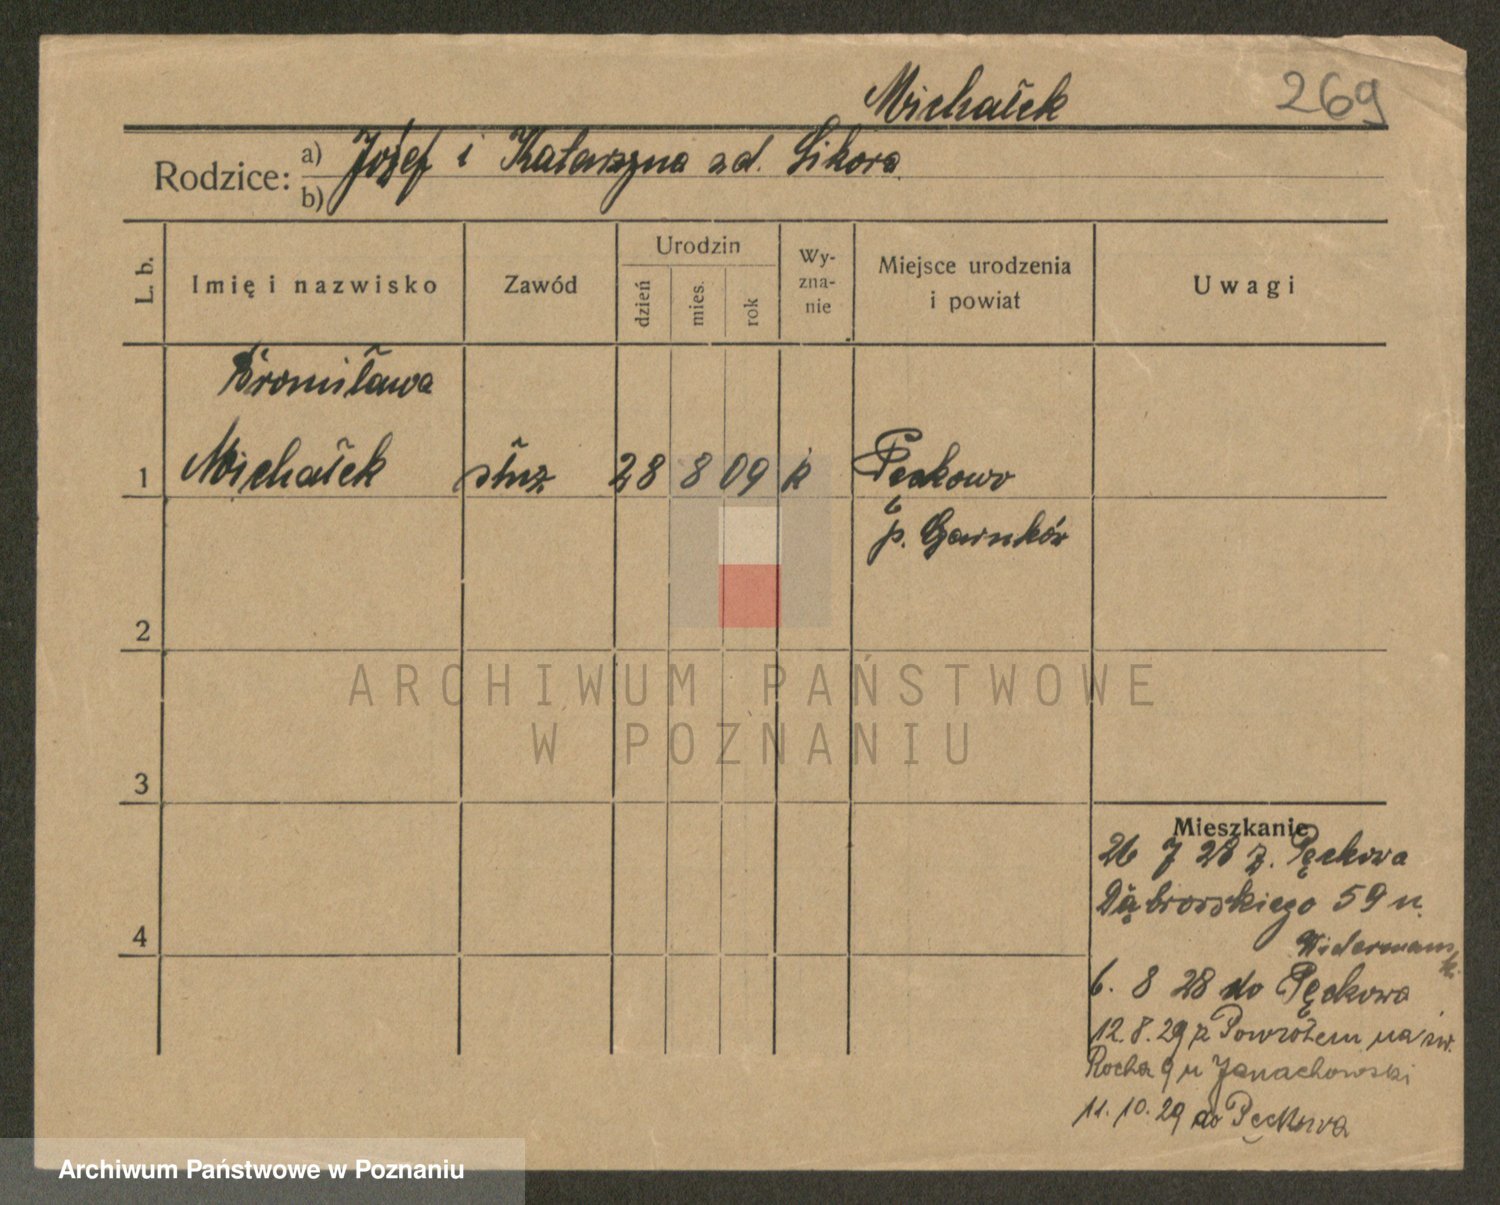 Michałek 269
Rodzice: a) Józef i Katarzyna zd. Sikora
b)
L. b. Imię i nazwisko Zawód Urodzin dzień mies. rok Wy-zna-nie Miejsce urodzenia i powiat Uwagi
Bronisława
1 Michałek służ 28 8 09 k Pęckowo
p. Czarnków
2
ARCHIWUM PAŃSTWOWE
W POZNANIU
3
Mieszkanie
26 7 28 z. Pęckowa
Dąbrowskiego 59 u.
4
6. 8 28 do Pęckowa
12.8.29 z Powrotem na św.
Rocha 9 u Janachowski
11.10.29 do Pęckowa
Archiwum Państwowe w Poznaniu